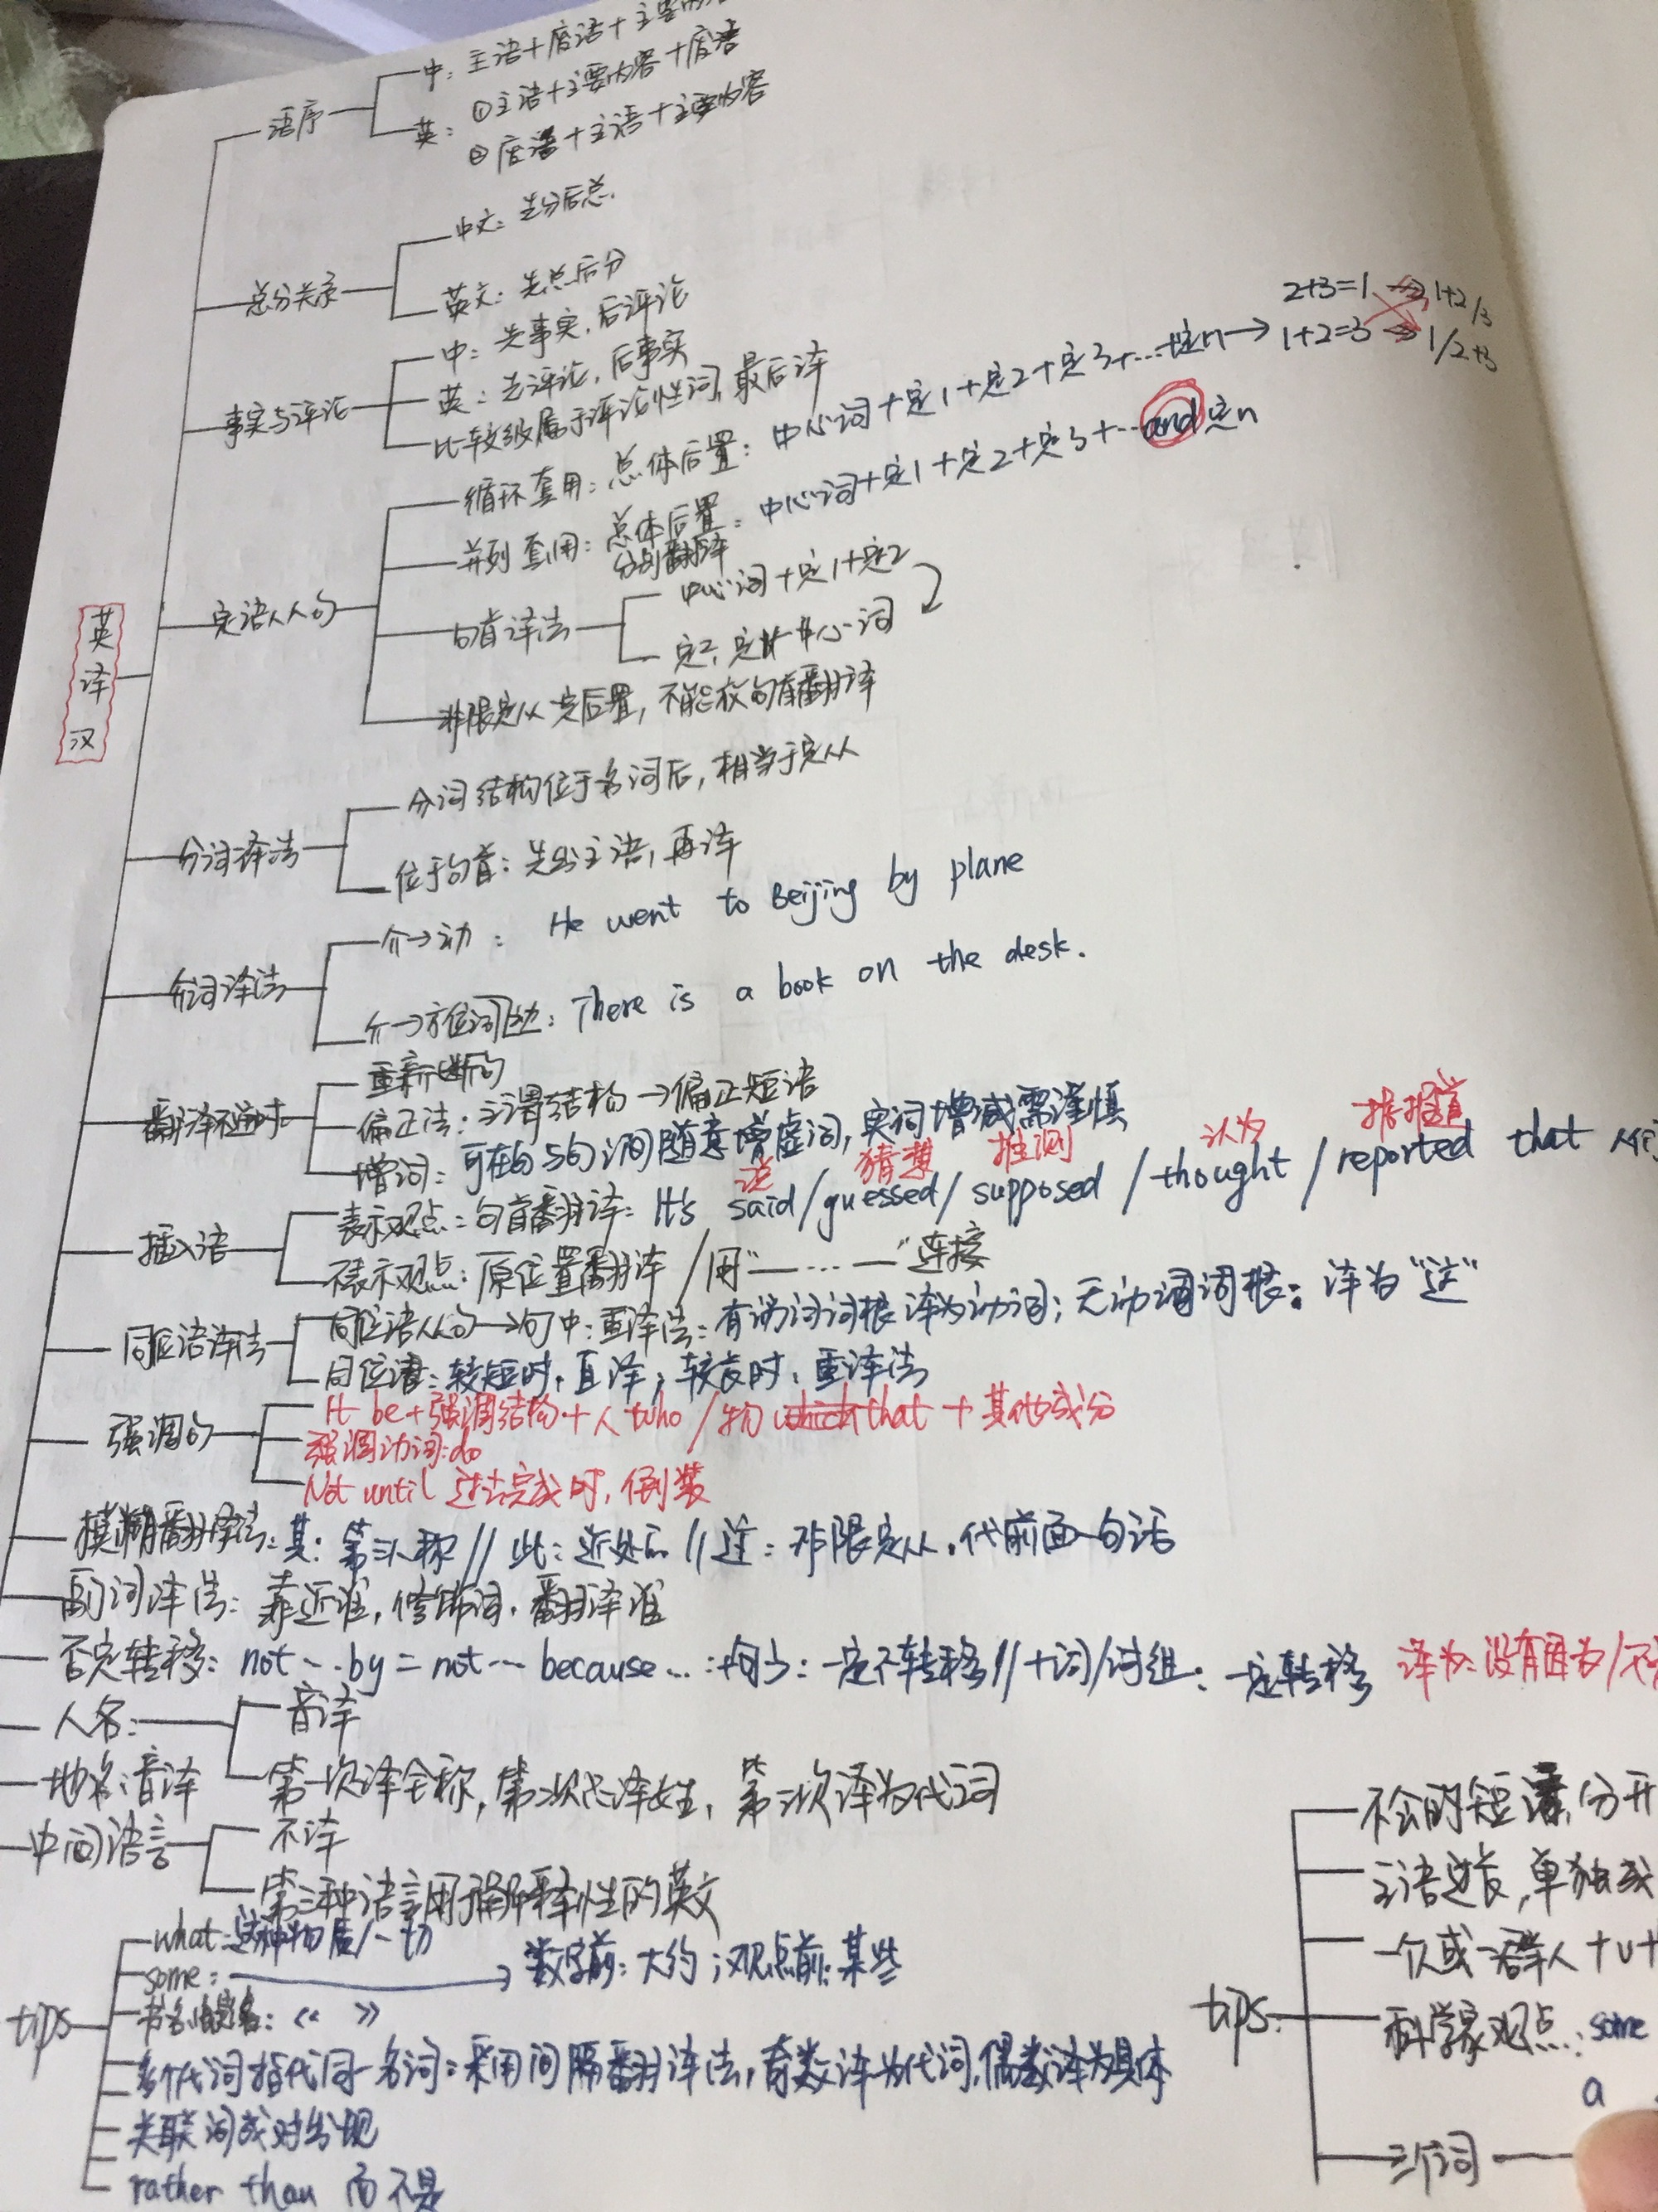 英译汉
语序
中：主语+废话+主要内容
英：①主语+主要内容+废话
②废话+主语+主要内容
总分关系
中文：先分后总
英文：先总后分
事实与评论
中：先事实，后评论
英：先评论，后事实
比较级属于评论性词，最后译
定语从句
循环套用：总体后置：中心词+定1+定2+定3+…+定n→
2+3=1 → 1+2/3
1+2=3 → 1/2+3
并列套用：总体后置：中心词+定1+定2+定3+…and定n
分别翻译
句首译法
中心词+定1+定2
定2，定1+中心词
非限定从 先后置，不能放句首翻译
分词译法
分词结构位于名词后，相当于定从
位于句首：先出主语，再译
介词译法
介→动： He went to Beijing by plane
介→方位词： There is a book on the desk.
翻译不通时
重新断句
偏正法：主谓结构→偏正短语
增词：可在句与句之间随意增虚词，实词增减需谨慎
说 猜想 推测 认为 据报道
插入语
表示观点：句首翻译：It's said/guessed/supposed/thought/reported that
不表示观点：原位置翻译/用"——…—"连接
同位语译法
同位语从句→句中：重译法：有动词词根译为动词；无动词词根：译为"这"
同位语：较短时，直译；较长时，重译法
强调句
It be+强调结构+人who/物that+其他成分
强调动词：do
Not until 过去完成时，倒装
模糊翻译法：其：第三人称//此：近处后//这：非限定从，代前面一句话
副词译法：靠近谁，修饰词，翻译谁
否定转移：not…by=not…because…：+句子：一定不转移//+词/词组：一定转移 译为：没有因为/不
人名：
音译
第一次译全称，第二次只译姓，第三次译为代词
地名：音译
中间语言
不译
第三种语言用解释性的英文
tips
what：这种物质/一切
some： → 数字前：大约；观点前：某些
书名：《 》
多个代词指代同一名词：采用间隔翻译法，奇数译为代词，偶数译为具体
关联词成对出现
rather than 而不是
tips：
不会的短语，分开
主语过长，单独成
一个或一群人+v+
科学家观点：some
a
三个词